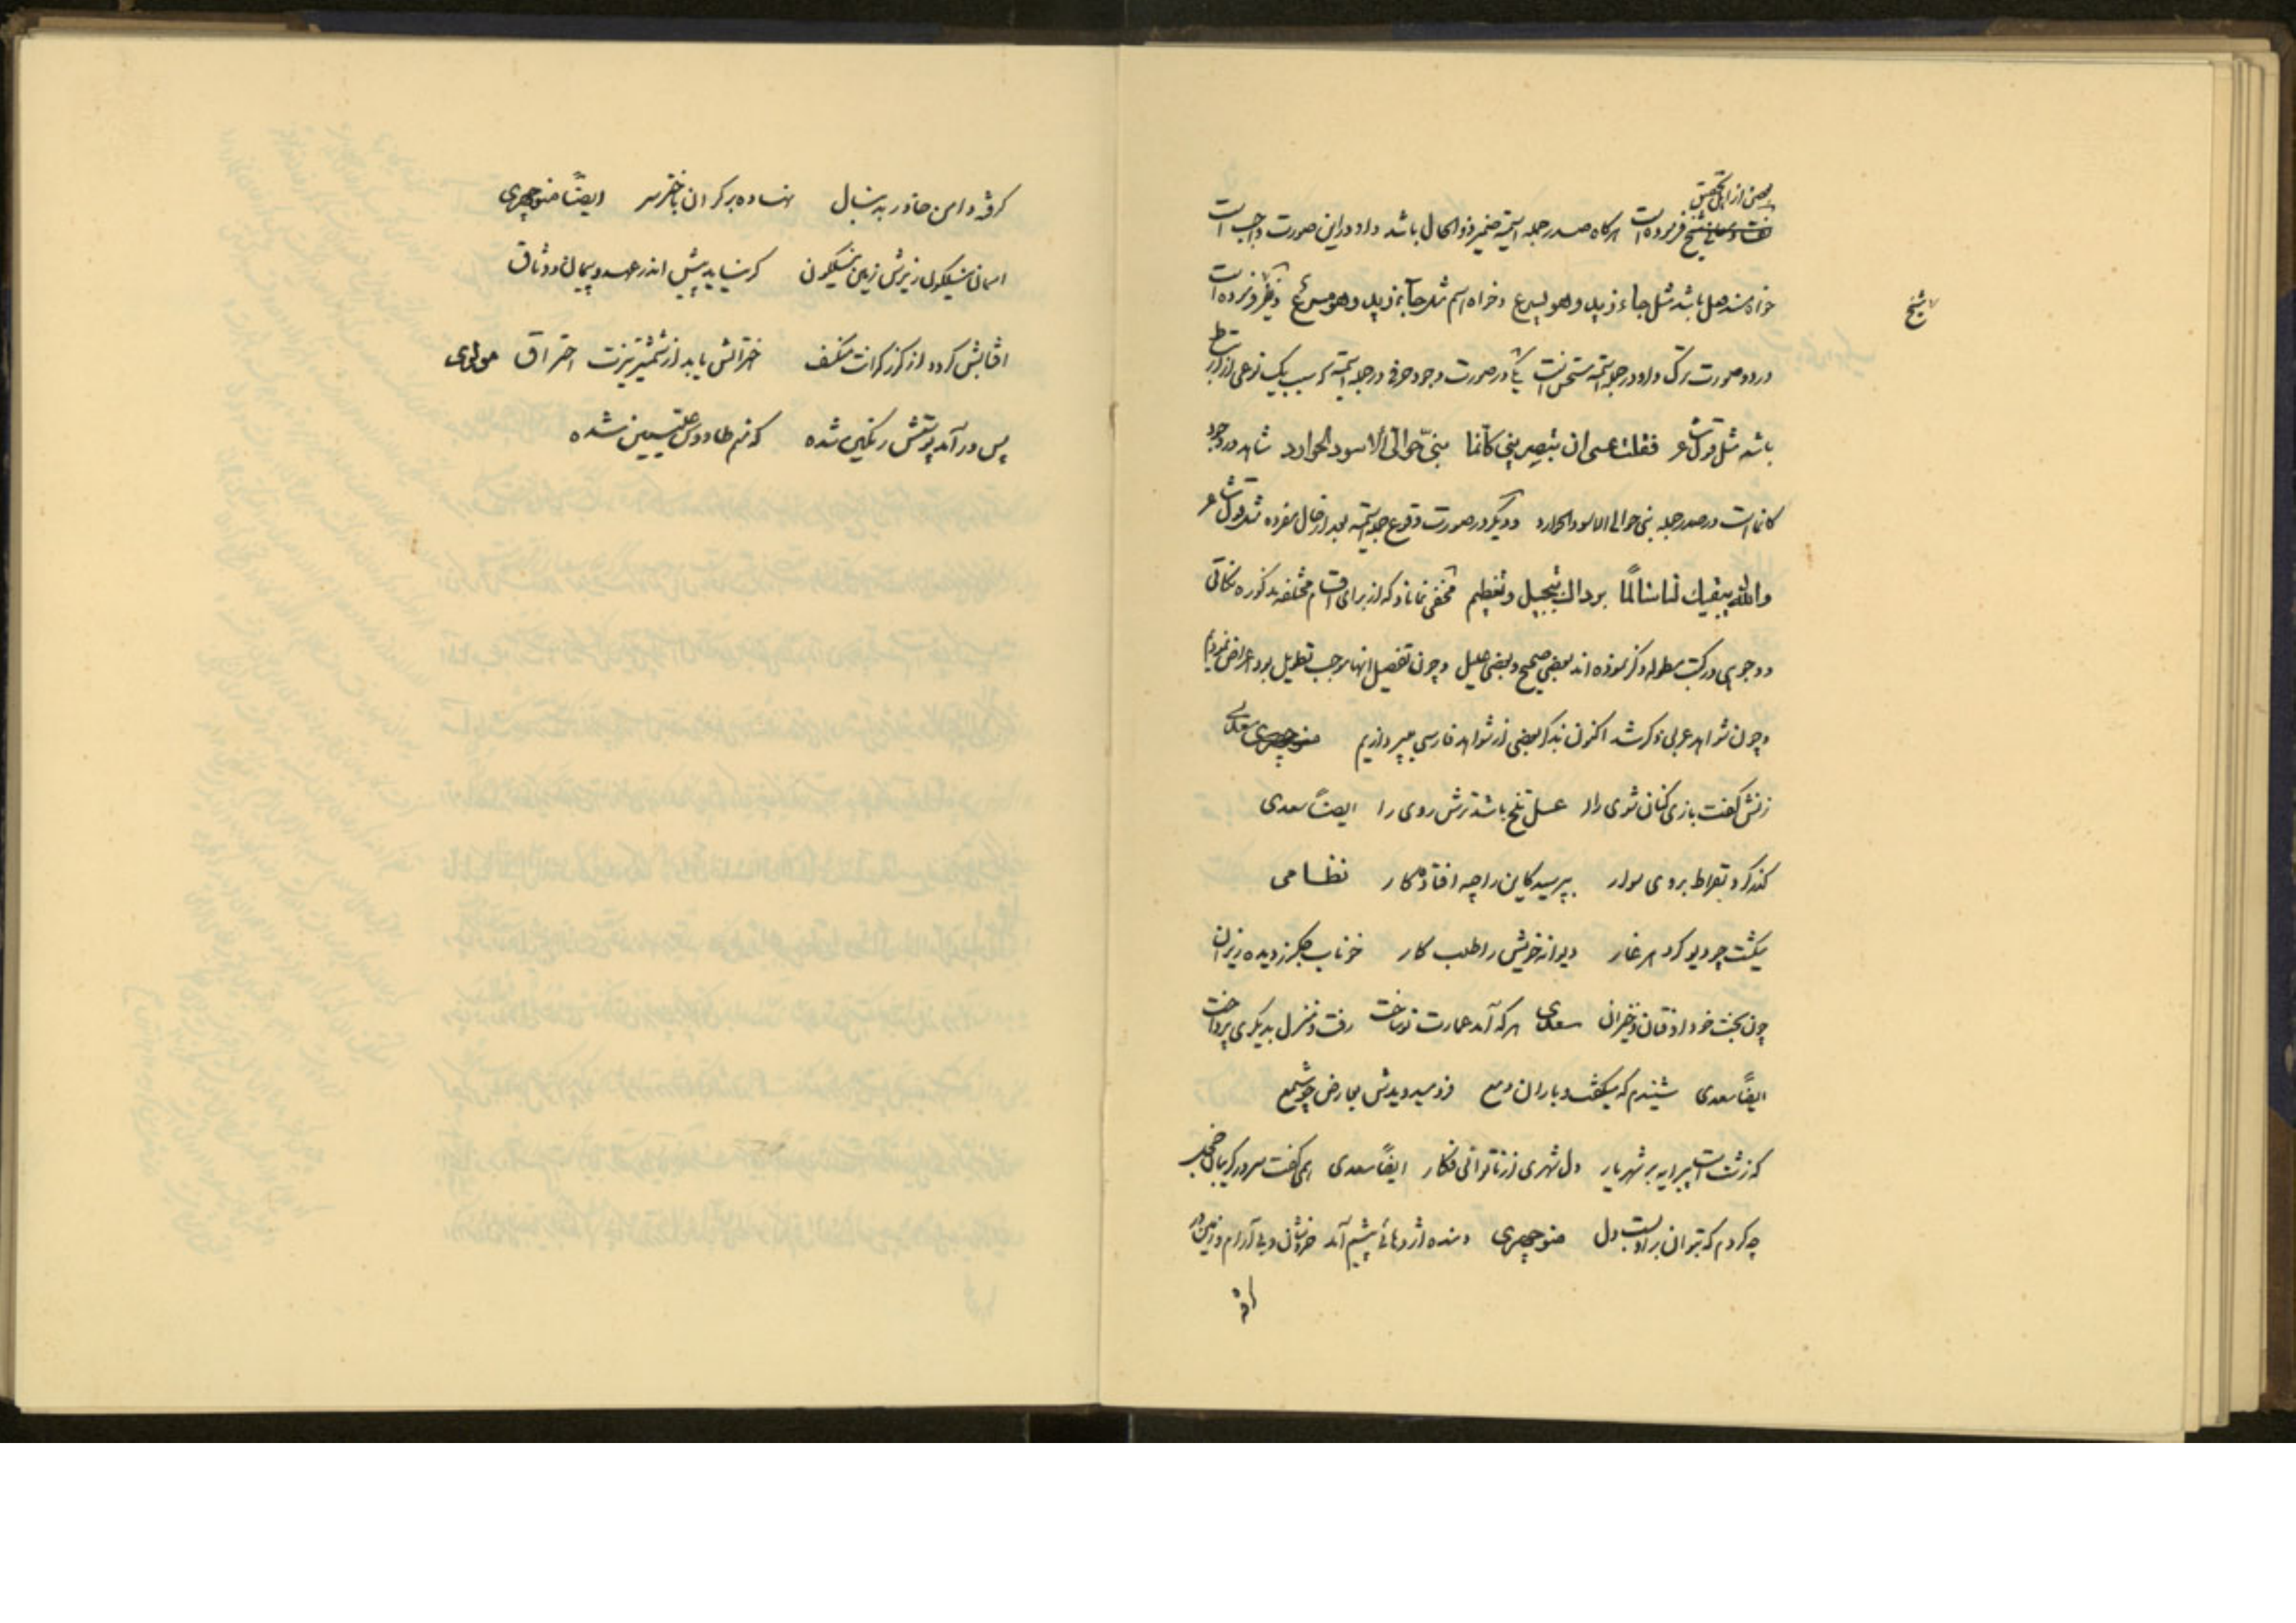 بعضی از اهل تحقیق
فرموده است هرگاه صدر جمله اسمیه ضمیر ذوالحال باشد واو در این صورت واجب است
خواه مسند فعل باشد مثل جاء زید وهو یسرع و خواه اسم مثل جاء زید وهو مسرع و شیخ فرموده است
شیخ
در دو صورت ترک واو در جمله اسمیه مستحسن است یکی در صورت وجود حرفی در جمله اسمیه که سبب یک نوعی از ارتباط
باشد مثل قول شاعر فقلت عسی ان تبصرینی کانما بنیّ حوالیّ الاسود الحوارد شاهد در وجود
کانما است در صدر جمله بنی حوالی الاسود الحوارد و دیگر در صورت وقوع جمله اسمیه بعد از حال مفرده مثل قول شاعر
والله یبقیک لنا سالمًا برداک تبجیل وتعظیم مخفی نماناد که از برای اقسام مختلفه مذکوره نکاتی
و وجوهی در کتب مطوله ذکر نموده اند بعضی صحیح و بعضی علیل و چون تفصیل انها موجب تطویل بود اعراض نمودیم
و چون شواهد عربی ذکر شد اکنون بذکر بعضی از شواهد فارسی میپردازیم منوچهری سعدی
زنش گفت بازی کنان شوی را عسل تلخ باشد ترش روی را ایضًا سعدی
گذر کرد بقراط بر وی سوار بپرسید کاین را چه افتاد کار نظامی
میگشت چو دیو گرد هر غار دیوانه خویش را طلب کار خوناب جگر ز دیده ریزان
چون بخت خود اوفتان و خیزان سعدی هر که آمد عمارت نو ساخت رفت و منزل بدیگری پرداخت
ایضًا سعدی شنیدم که میگفت و باران دمع فرو میدویدش بعارض چو شمع
که زشت است پیرایه بر شهریار دل شهری از ناتوانی فکار ایضًا سعدی همی گفت سر در گریبان خجل
چه کردم که بتوان بر او بست دل منوچهری دمنده اژدهائی پیشم آمد خروشان و بی آرام و زمین در
گرفته دامن خاور به دنبال نهاده بر کران باختر سر ایضًا منوچهری
اسمان نیلگون زیرش زمین نیلگون کر نیاید پیش اندر عهد و پیمان و وثاق
افتابش گردد از گرز گرانت منکسف اخترانش یابد از شمشیر تیزت احتراق مولوی
پس در آمد پوستش رنگین شده که منم طاووس علیین شده